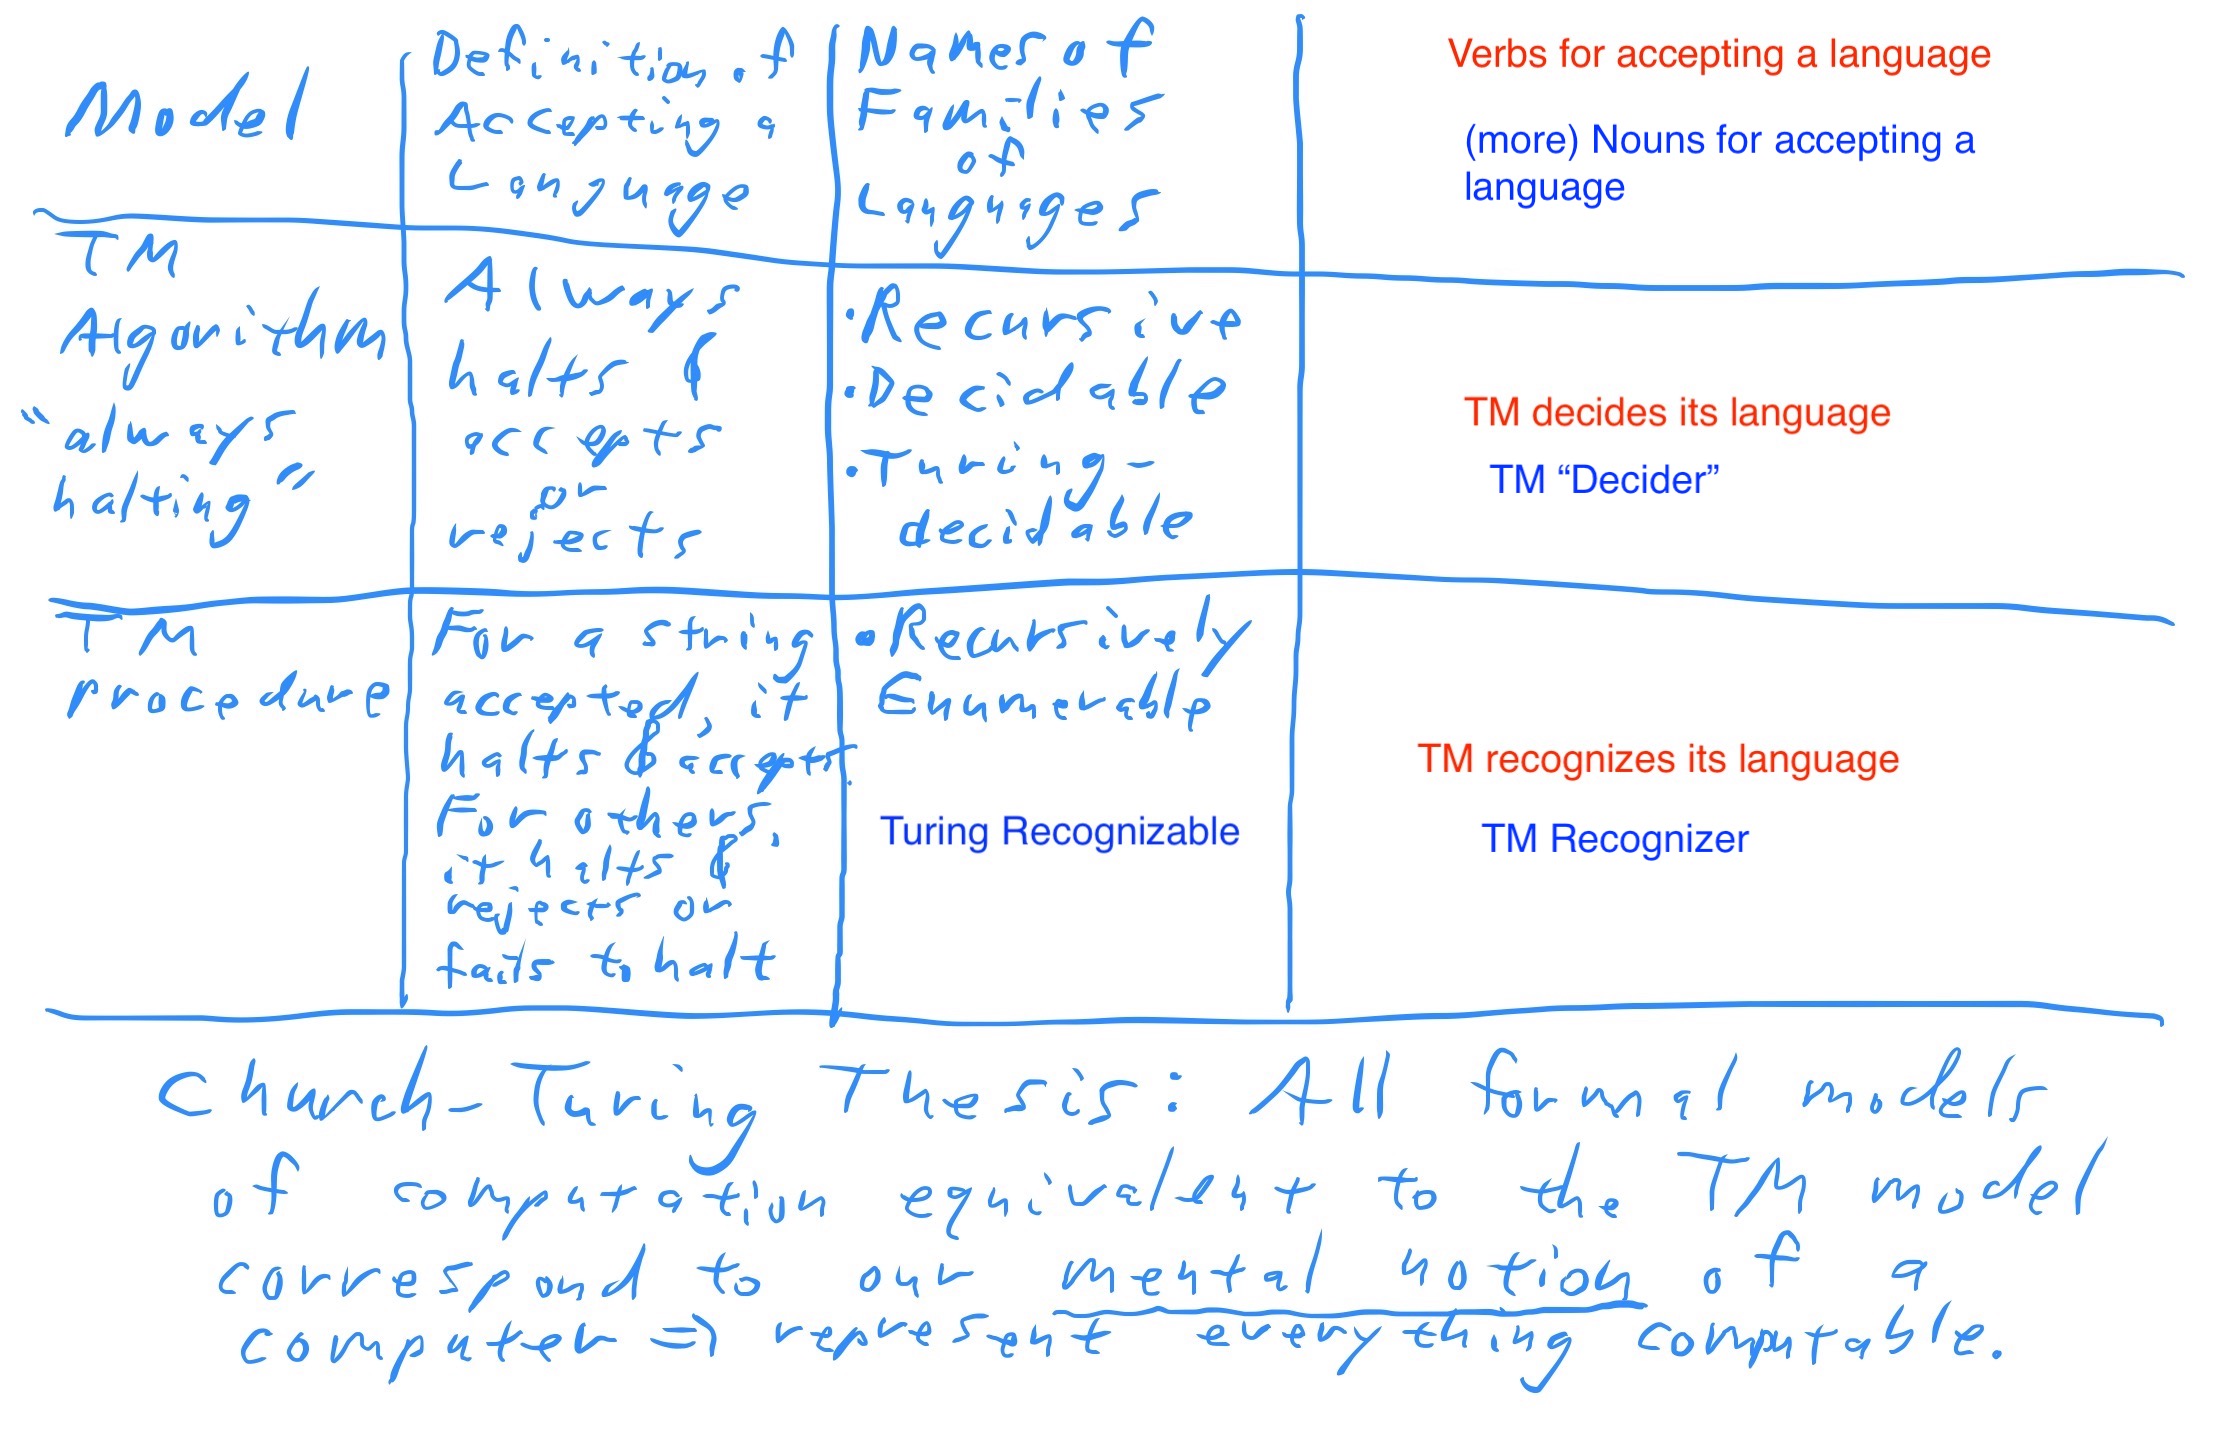 Model
Definition of
Accepting a
Language
Names of
Families
of
Languages
Verbs for accepting a language
(more) Nouns for accepting a
language
TM
Algorithm
"always
halting"
Always
halts &
accepts
or
rejects
•Recursive
•Decidable
•Turing-
decidable
TM decides its language
TM “Decider”
TM
procedure
For a string
accepted, it
halts & accepts.
For others,
it halts &
rejects or
fails to halt
•Recursively
Enumerable
Turing Recognizable
TM recognizes its language
TM Recognizer
Church-Turing Thesis: All formal models
of computation equivalent to the TM model
correspond to our mental notion of a
computer => represent everything computable.